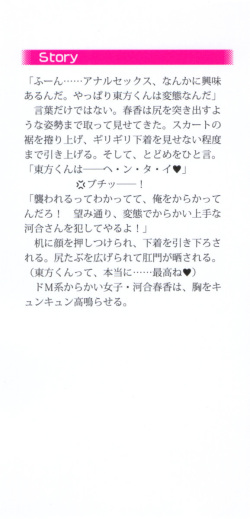 Story
「ふーん……アナルセックス、なんかに興味
あるんだ。やっぱり東方くんは変態なんだ」
　言葉だけではない。春香は尻を突き出すよ
うな姿勢まで取って見せてきた。スカートの
裾を捲り上げ、ギリギリ下着を見せない程度
まで引き上げる。そして、とどめをひと言。
「東方くんは──ヘ・ン・タ・イ♥」
💢ブチッ──！
「襲われるってわかってて、俺をからかって
んだろ！　望み通り、変態でからかい上手な
河合さんを犯してやるよ！」
　机に顔を押しつけられ、下着を引き下ろさ
れる。尻たぶを広げられて肛門が晒される。
（東方くんって、本当に……最高ね♥）
　ドＭ系からかい女子・河合春香は、胸をキ
ュンキュン高鳴らせる。